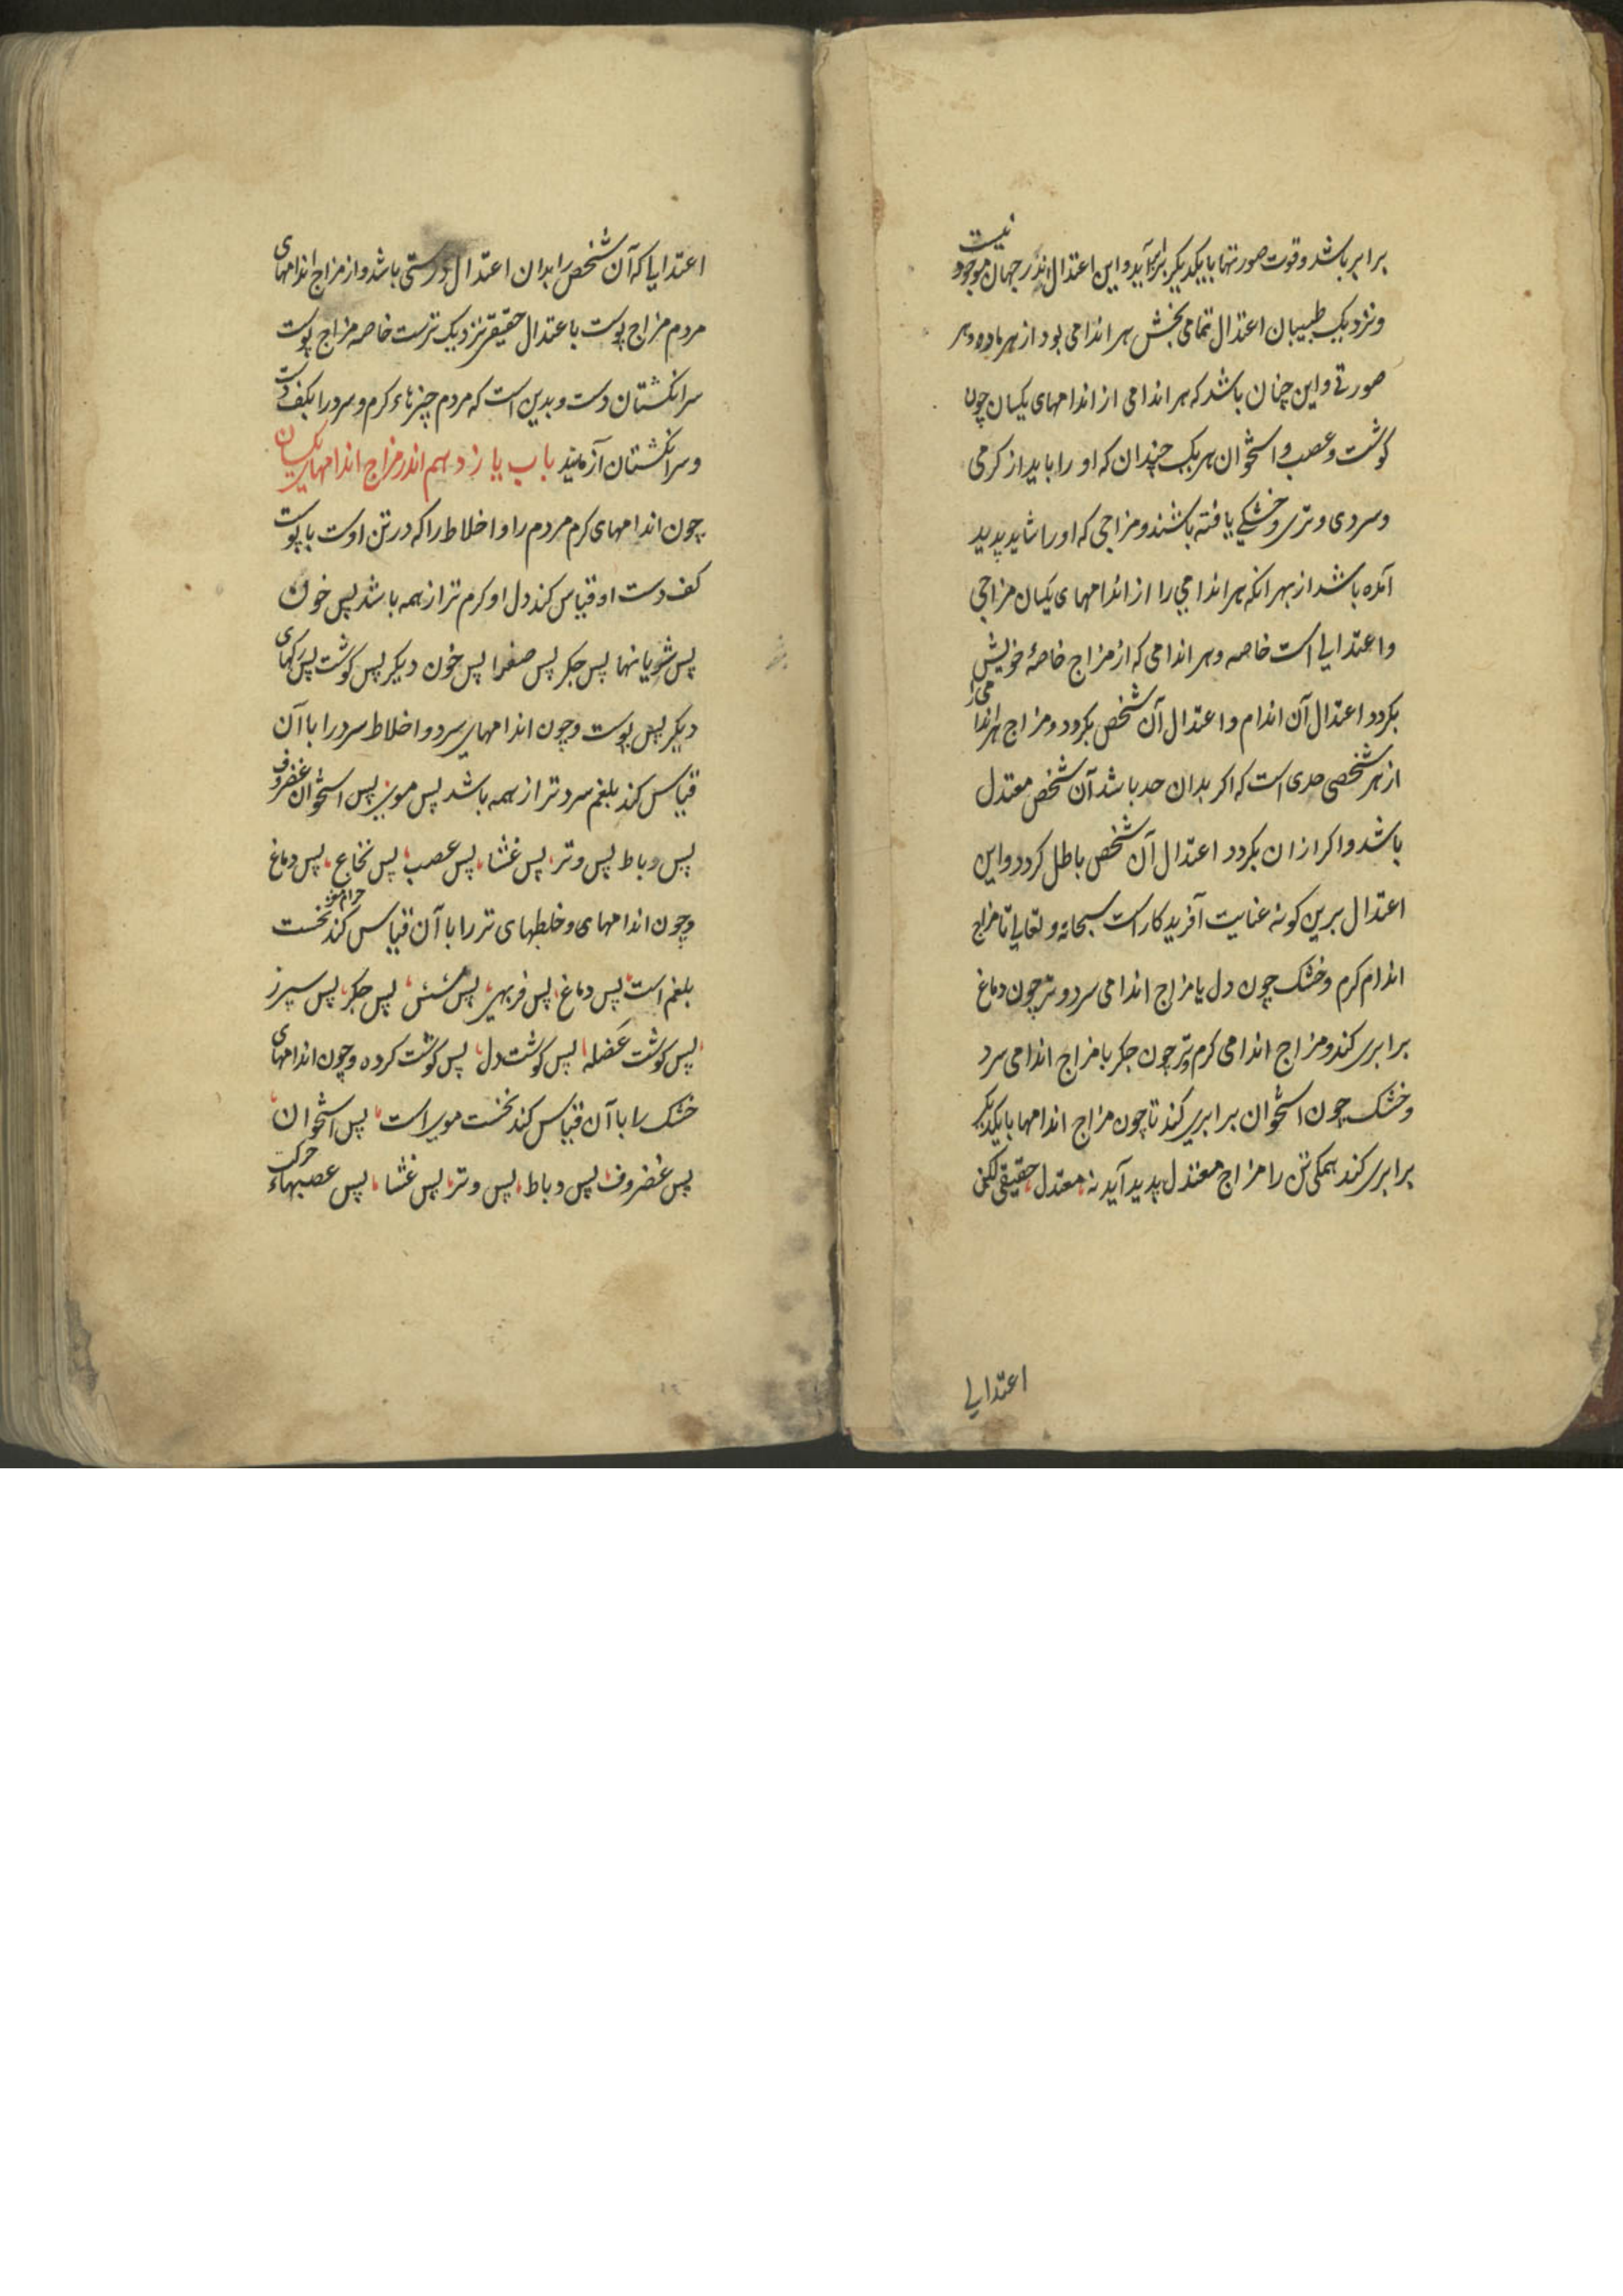 برابر باشد و قوت صورتها با یکدیگر برآید و این اعتدال اندر جهان موجود نیست
و نزدیک طبیبان اعتدال تمامی بخش هر اندامی بود از هر ماده و هر
صورتی و این چنان باشد که هر اندامی از اندامهای یکسان چون
کوشت و عصب و استخوان هر یک چندان که او را باید از کرمی
و سردی و تری و خشکی یافته باشند و مزاجی که او را شاید پدید
آمده باشد از بهر انکه هر اندامی را از اندامهای یکسان مزاجی
و اعتدالی است خاصه و هر اندامی که از مزاج خاصهٔ خویش
بکردد اعتدال آن اندام و اعتدال آن شخص بکردد و مزاج هر اندامی
از هر شخصی حدی است که اکر بدان حد باشد آن شخص معتدل
باشد و اکر ازان بکردد اعتدال آن شخص باطل کردد و این
اعتدال برین کونه عنایت آفریدکار است سبحانه و تعالی تا مزاج
اندام کرم و خشک چون دل با مزاج اندامی سرد و تر چون دماغ
برابری کند و مزاج اندامی کرم و تر چون جکر با مزاج اندامی سرد
و خشک چون استخوان برابری کند تا چون مزاج اندامها با یکدیکر
برابری کند همکی تن را مزاج معتدل پدید آید نه معتدل حقیقی لکن
اعتدالی
اعتدالی که آن شخص را بدان اعتدال درستی باشد و از مزاج اندامهای
مردم مزاج پوست باعتدال حقیقی نزدیک ترست خاصه مزاج پوست
سرانکشتان دست و بدین است که مردم چیزهاء کرم و سرد را بکف دست
و سرانکشتان آزمایند باب یازدهم اندر مزاج اندامهای یکسان
چون اندامهای کرم مردم را و اخلاط را که در تن اوست با پوست
کف دست او قیاس کند دل او کرم تر از همه باشد پس خون
پس شریانها پس جکر پس صفرا پس خون دیکر پس کوشت پس رکهای
دیکر پس پوست و چون اندامهای سرد و اخلاط سرد را با آن
قیاس کند بلغم سردتر از همه باشد پس موی پس استخوان غضروف
پس رباط پس وتر پس غشا پس عصب پس نخاع پس دماغ
حرام مغز
و چون اندامهای و خلطهای تر را با آن قیاس کند نخست
بلغم است پس دماغ پس فربهی پس شش پس جکر پس سپرز
پس کوشت عضله پس کوشت دل پس کوشت کرده و چون اندامهای
خشک را با آن قیاس کند نخست موی است پس استخوان
پس غضروف پس رباط پس وتر پس غشا پس عصبهاء حرکت